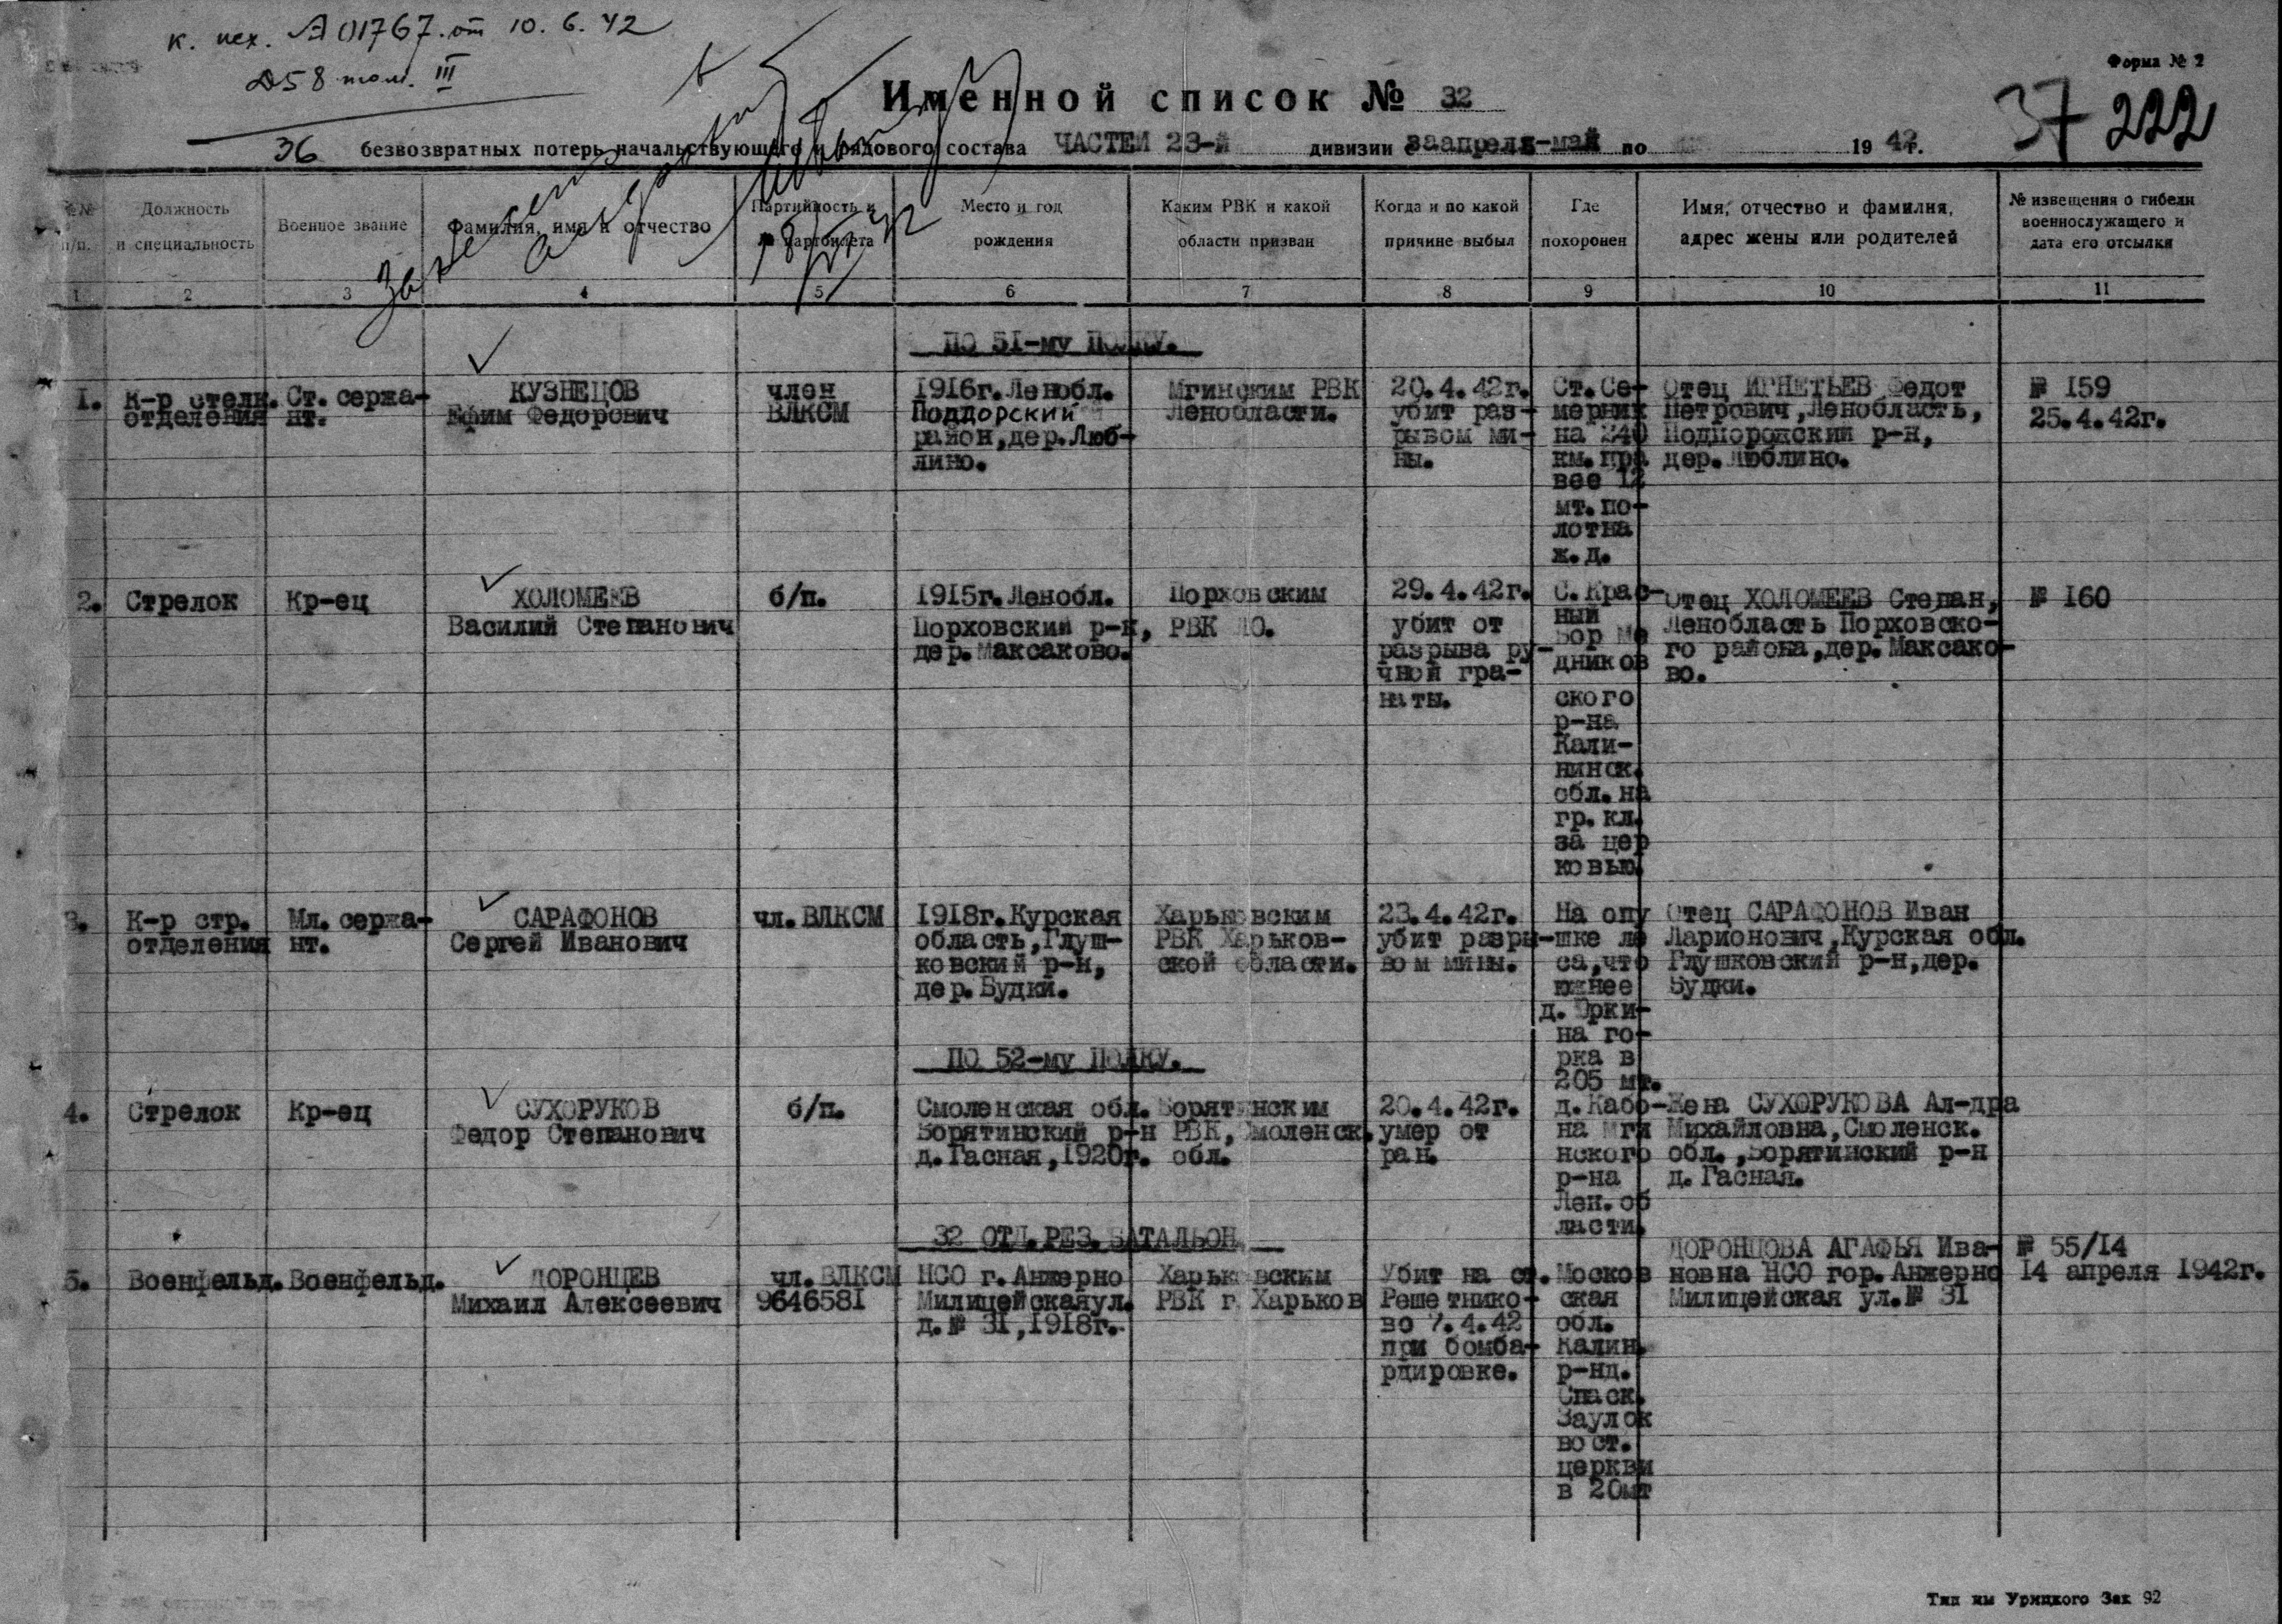 к. исх. А 01767. от 10. 6. 42
D58 том. III
Форма № 2
Именной список № 32
37 222
36 безвозвратных потерь начальствующего и рядового состава ЧАСТЕЙ 23-й дивизии с за апрель-май по 1942г.
№№ п/п.
Должность
и специальность
Военное звание
Фамилия, имя и отчество
Партийность и
№ партбилета
Место и год
рождения
Каким РВК и какой
области призван
Когда и по какой
причине выбыл
Где
похоронен
Имя, отчество и фамилия,
адрес жены или родителей
№ извещения о гибели
военнослужащего и
дата его отсылки
1 2 3 4 5 6 7 8 9 10 11
ПО 51-му ПОЛКУ.
1.
К-р стелк.
отделения
Ст. сержа-
нт.
КУЗНЕЦОВ
Ефим Федорович
член
ВЛКСМ
1916г.Ленобл.
Поддорский
район,дер.Люб-
лино.
Мгинским РВК
Ленобласти.
20.4.42г.
убит раз-
рывом ми-
ны.
Ст.Се-
мерних
на 240
км.пра
вее 12
мт.по-
лотна
ж.д.
Отец ИГНЕТЬЕВ Федот
Петрович,Ленобласть,
р-н,
дер.Люблино.
№ 159
25.4.42г.
2.
Стрелок
Кр-ец
ХОЛОМЕЕВ
Василий Степанович
б/п.
1915г.Ленобл.
Порховский р-н,
дер.Максаково.
Порховским
РВК ЛО.
29.4.42г.
убит от
разрыва ру-
чной гра-
наты.
С.Крас-
ный
Бор Ме
дников
ского
р-на
Кали-
нинск.
обл.на
гр.кл.
за цер
ковью.
Отец ХОЛОМЕЕВ Степан,
Ленобласть Порховско-
го района,дер.Максако-
во.
№ 160
3.
К-р стр.
отделения
Мл. сержа-
нт.
САРАФОНОВ
Сергей Иванович
чл.ВЛКСМ
1918г.Курская
область,Глуш-
ковский р-н,
дер.Будки.
Харьковским
РВК Харьков-
ской области.
23.4.42г.
убит разры-
вом мины.
На опу
шке ле
са,что
южнее
д. Юрки-
на го-
рка в
205 мт.
Отец САРАФОНОВ Иван
Ларионович,Курская обл.
Глушковский р-н,дер.
Будки.
ПО 52-му ПОЛКУ.
4.
Стрелок
Кр-ец
СУХОРУКОВ
Федор Степанович
б/п.
Смоленская обл.
Борятинский р-н
д.Гасная,1920г.
Борятинским
РВК,Смоленск.
обл.
20.4.42г.
умер от
ран.
д.Кабо-
на Мги
нского
р-на
Лен.об
ласти.
Жена СУХОРУКОВА Ал-дра
Михайловна,Смоленск.
обл.,Борятинский р-н
д.Гасная.
32 ОТД.РЕЗ.БАТАЛЬОН
5.
Военфельд.
Военфельд.
ДОРОНЦЕВ
Михаил Алексеевич
чл.ВЛКСМ
9646581
НСО г.Анжерно
Милицейскаяул.
д.№ 31,1918г.
Харьковским
РВК г.Харьков
Убит на ст.
Решетнико-
во 7.4.42
при бомба-
рдировке.
Москов
ская
обл.
Калин.
р-нд.
Спаск.
Заулок
вост.
церкви
в 20мт
ДОРОНЦОВА АГАФЬЯ Ива-
новна НСО гор.Анжерно
Милицейская ул.№ 31
№ 55/14
14 апреля 1942г.
Тип им Урицкого Зак 92